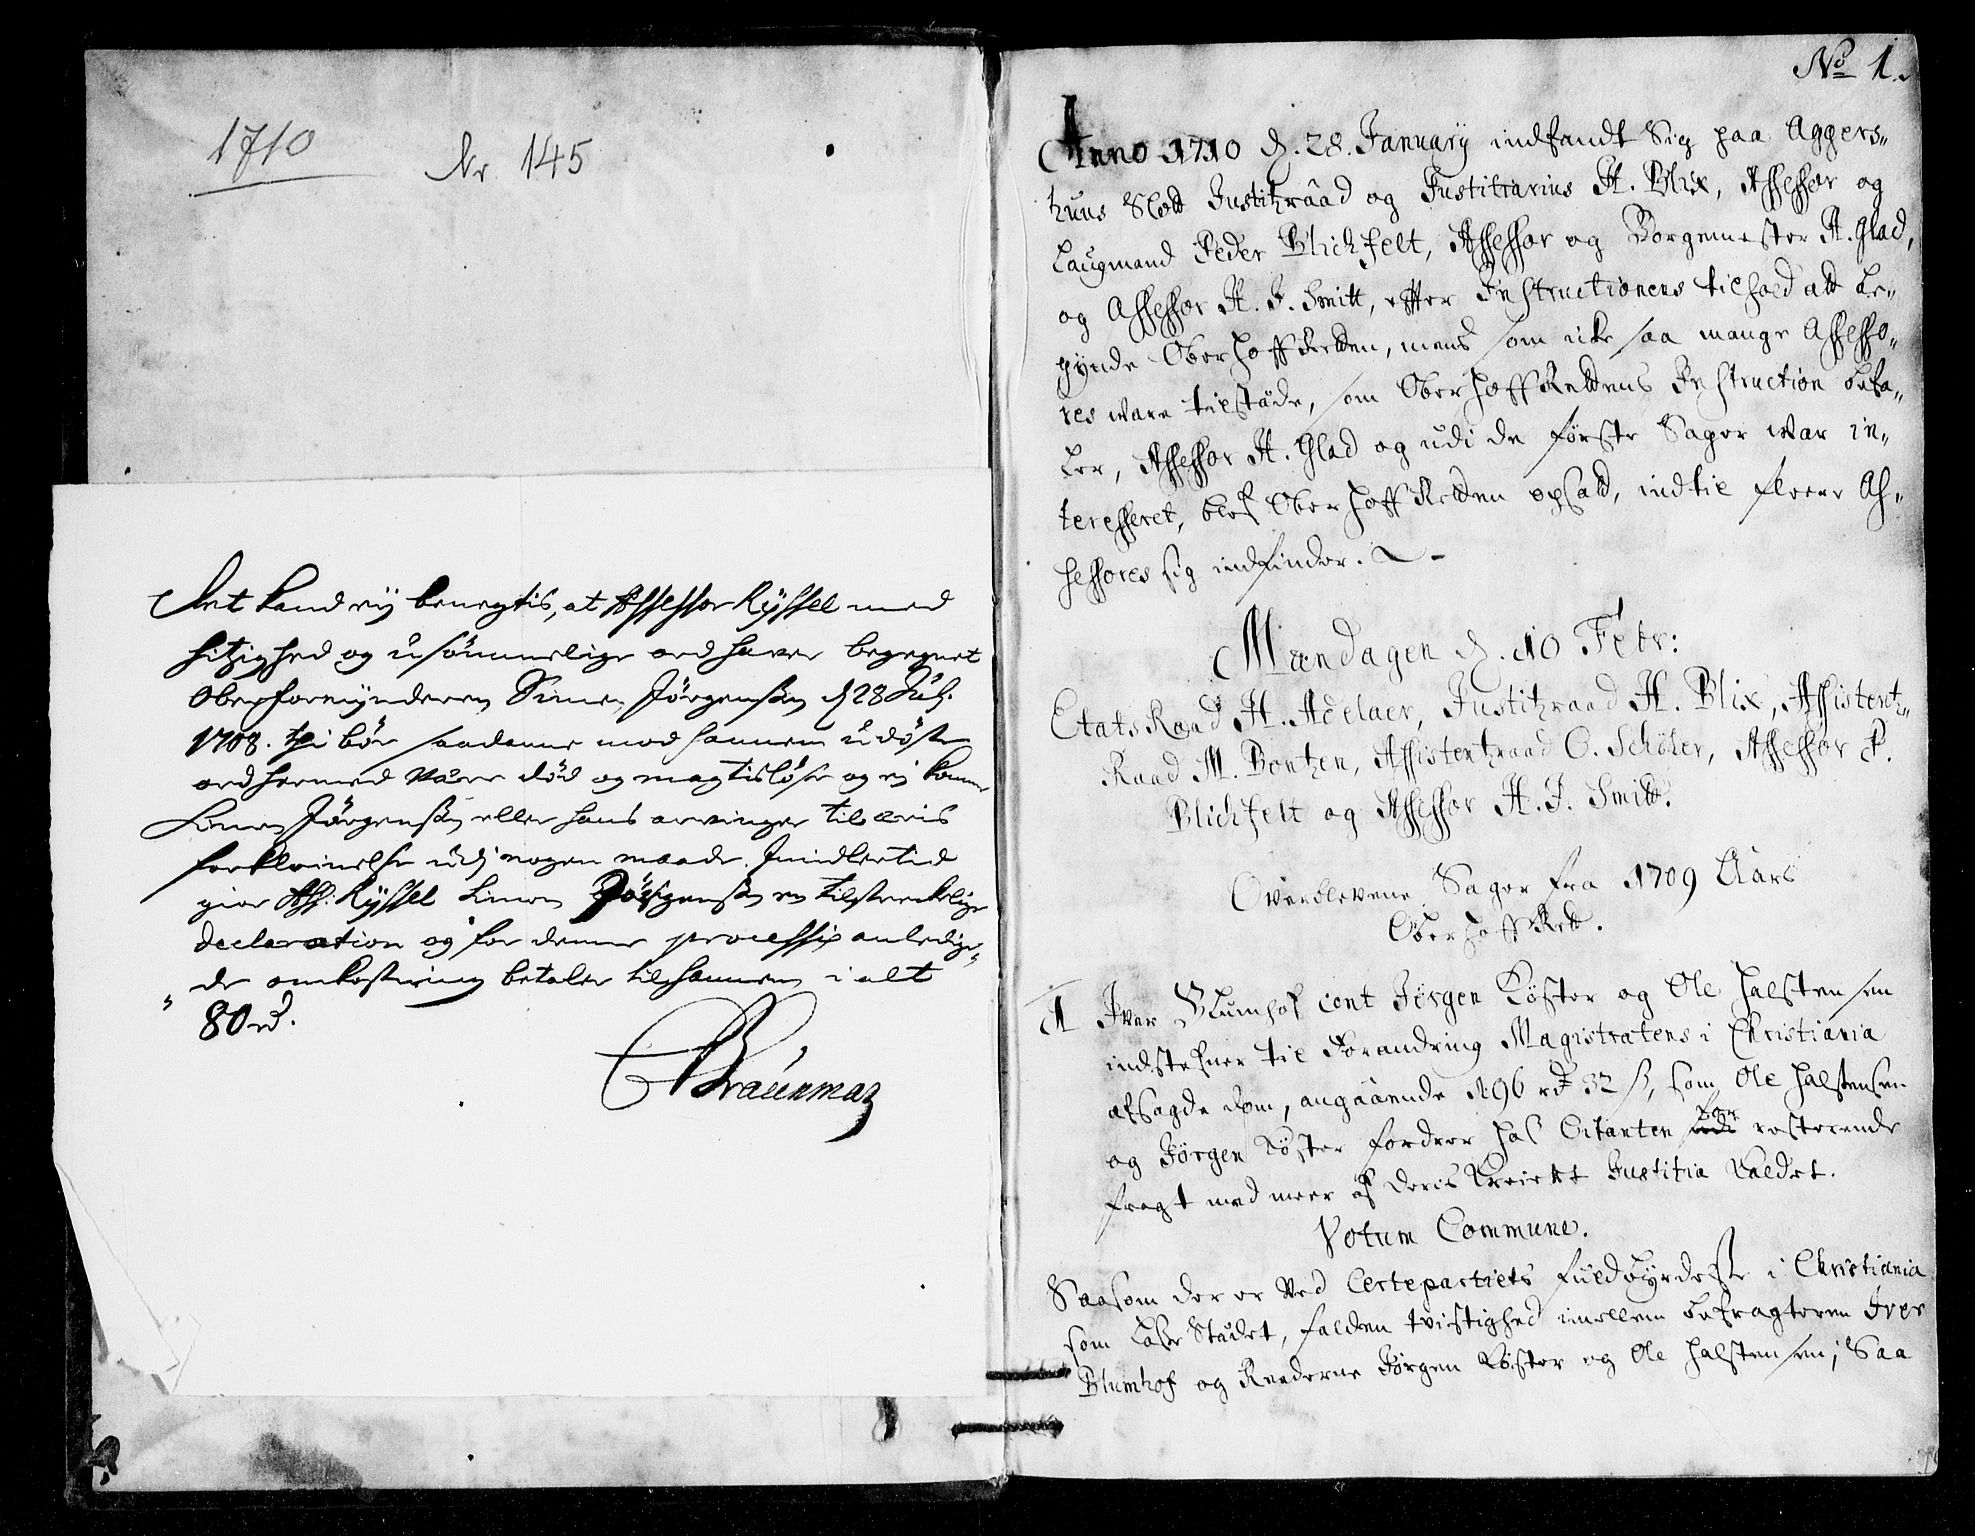 1710
Nr 145
Det kand ej benegtis, at Assessor Ryssel med
hitzighed og usømmelige ord haver begegnet
Oberformynderen Simen Jørgensen d 28 Julj
1708. thi bør saadanne mod hannem udøste
ord hermed være død og magtisløse og ej komme
Simen Jørgensen eller hans arvinger til æris
forkleinelse udj nogen maade. Imidlertid
giør Ass. Ryssel Simen Jørgensen en tilstrekelige
declaration og for denne processis anledige„
„de omkostning betaler til hannem i alt
80 rd.
Braunman
No 1.
Anno 1710 d. 28. January indfandt Sig paa Aggers„
huus Slott Justitzraad og Justitiarius H. Blix, Assessor og
Laugmand Peder Blichfelt, Assessor og Borgemester H. Glad,
og Assessor H. J. Smitt, efter Instructionens tilhold att be„
gynde OberhoffRetten, mens som icke saa mange Assesso„
res ware tilstæde, som OberhoffRettens Instruction befa„
ler, Assessor H. Glad og udi de første Sager war in„
teresseret, blef OberhoffRetten opsatt, indtil fleere As„
sessores sig indfinder.
Mandagen d. 10 Febr:
EtatsRaad H. Adelaer, Justitzraad H. Blix, Assistentz„
Raad M. Bentzen, Assistentzraad O. Schöler, Assessor P.
Blichfelt og Assessor H. J. Smitt.
Overblevene Sager fra 1709 Aars
OberhoffRett.
1 Iver Blumhof cont Jørgen Køster og Ole Halstensen
indstefner til Forandring Magistratens i Christiania
afsagde dom, angaaende 196 rd 32 s, som Ole Halstensen
og Jørgen Køster fordrer hos Citanten for resterende
fragt med meer af deris Creiert Justitia kaldet.
Votum Commune.
Saasom der er ved Certepartiets fuldbyrdelse i Christiania
som Losse Stædet, falden tvistighed imellem befragteren Iver
Blumhof og Reederne Jørgen Køster og Ole Halstensen, Saa